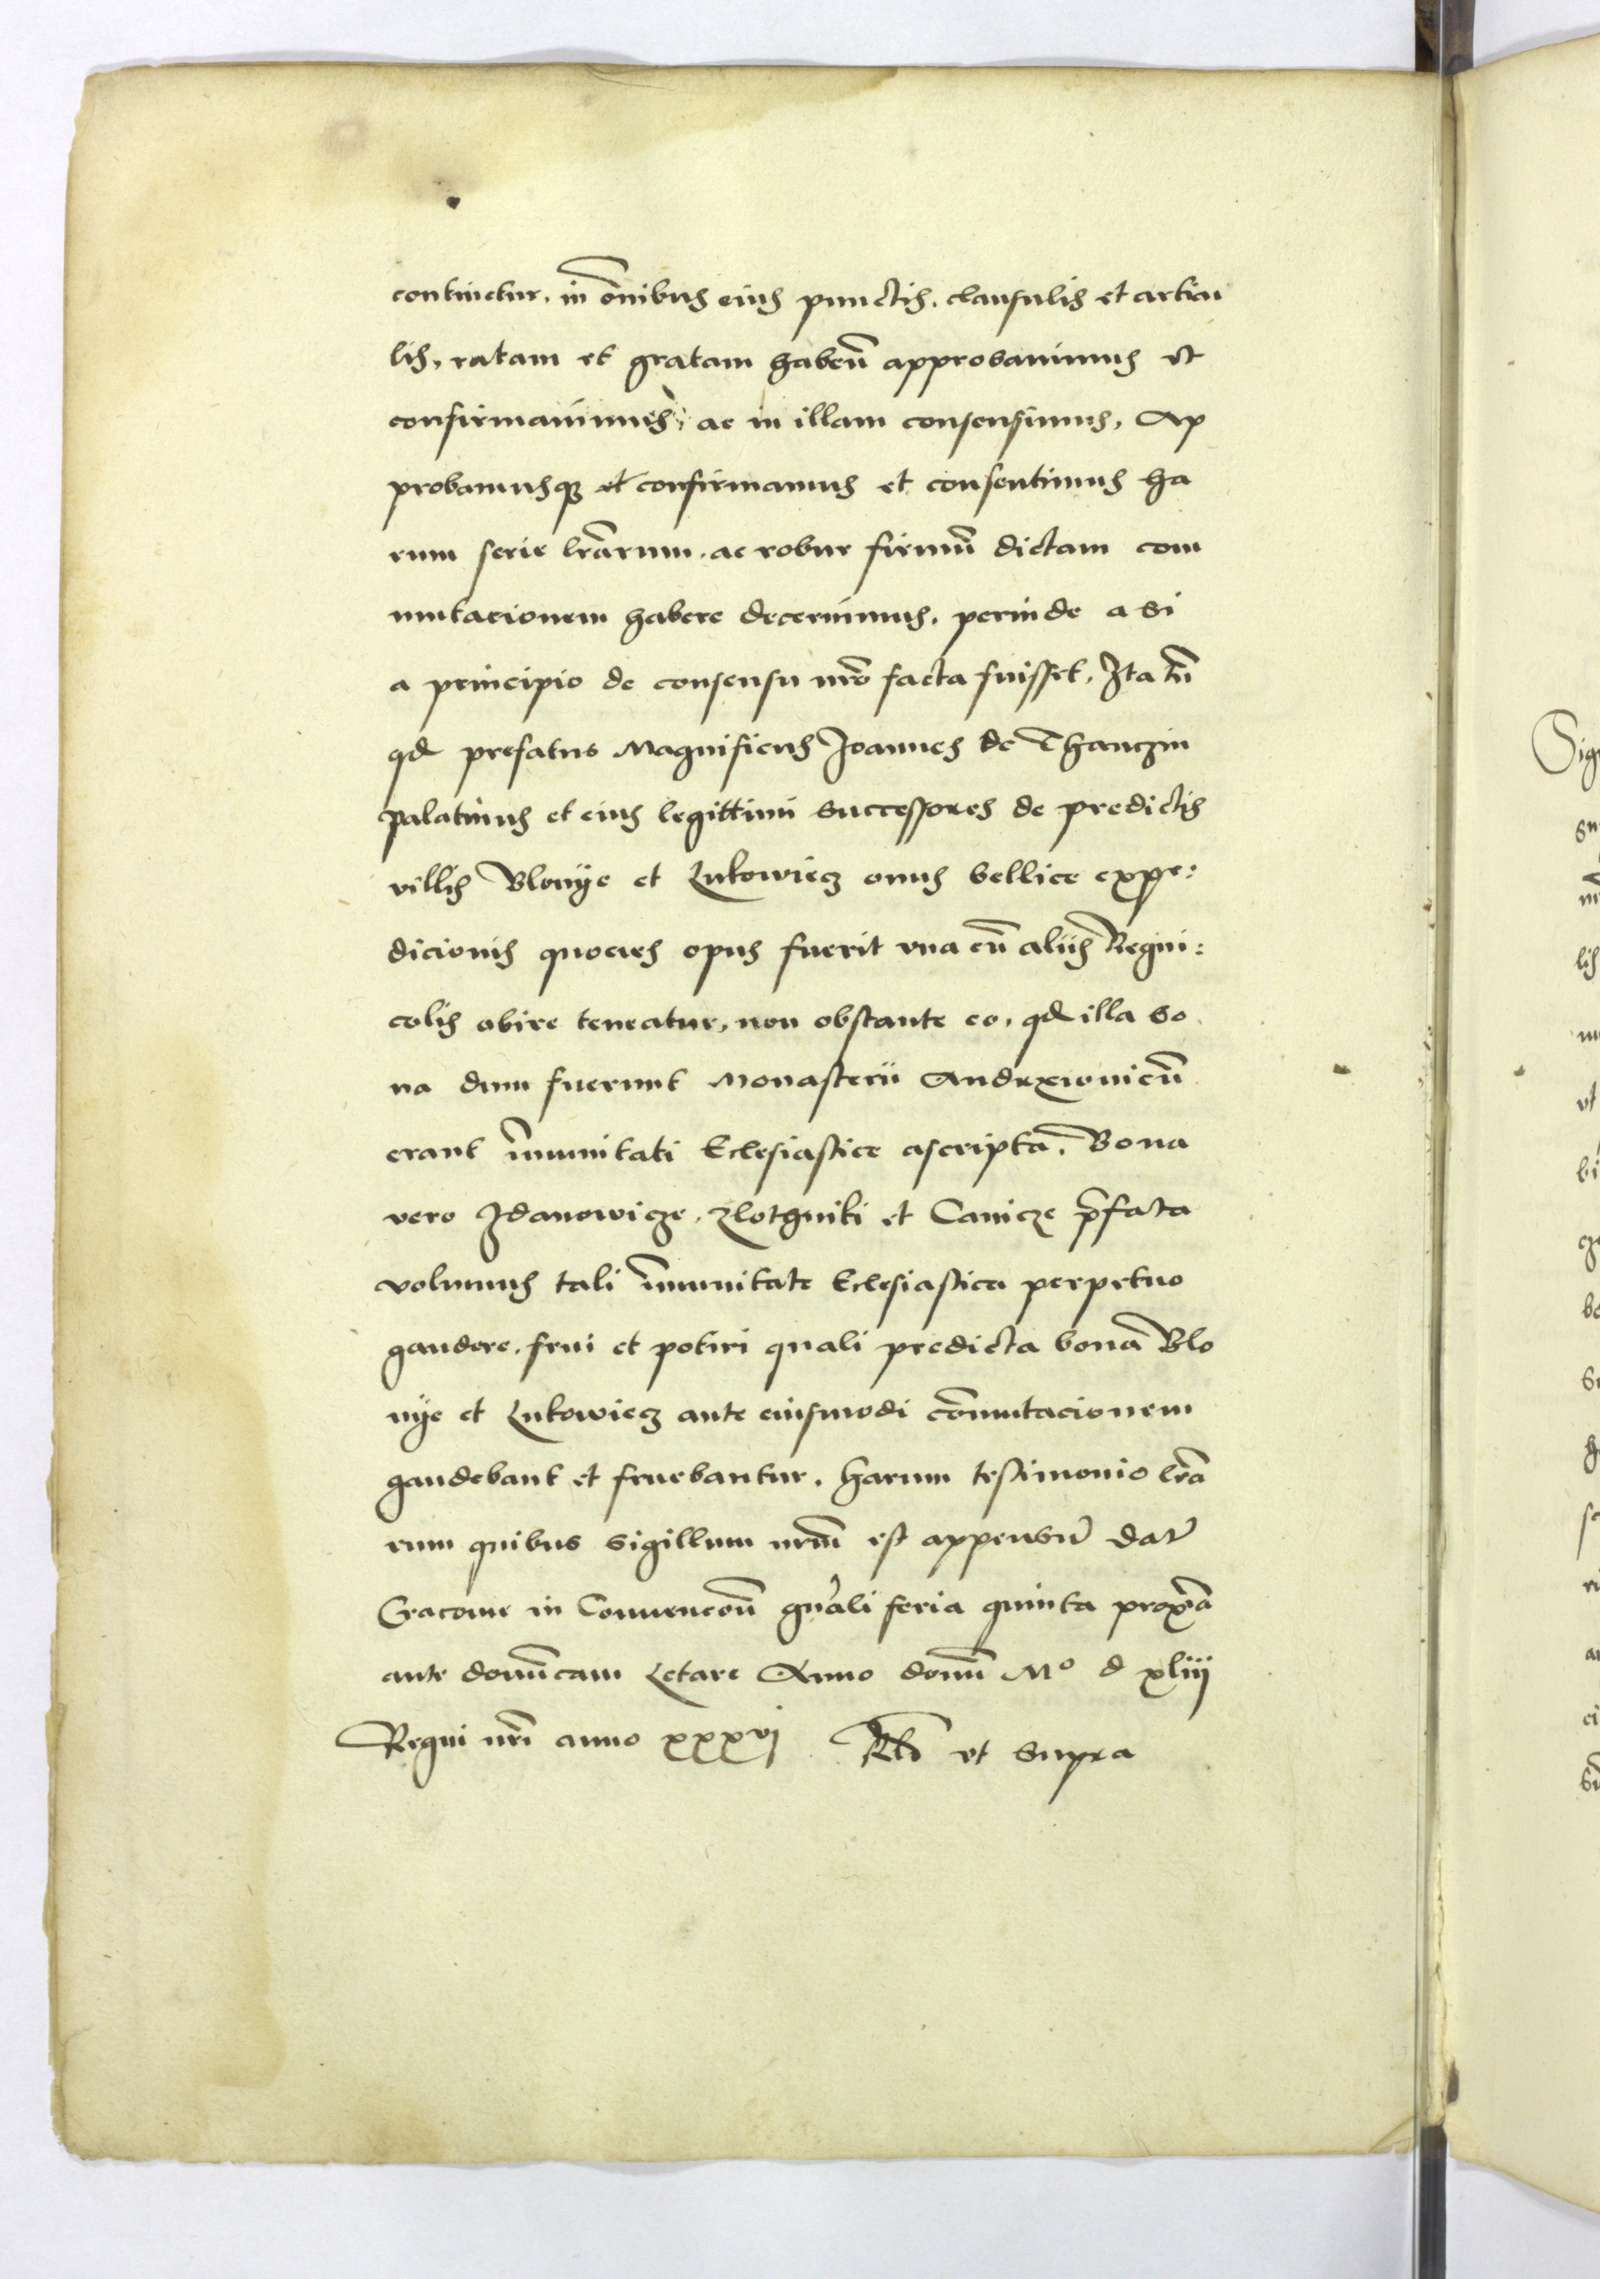 continetur, in õnibus eius punctis, clausulis et articu
lis, ratam et gratam habeñ approbavimus et
confirmavimus, ac in illam consensimus, Ap
probamusq3 et confirmamus et consentimus ha
rum serie lrãrum, ac robur firmũ dictam com
mutacionem habere decernimus, perinde a si
a principio de consensu nrõ facta fuisset, Ita tñ
qd prefatus Magnificus Joannes de Thanczin
palatinus et eius legittimi successores de predictis
villis Blonye et Lukowiecz onus bellice expe:
dicionis quocies opus fuerit vna cũ aliis Regni:
colis obire teneatur, non obstante eo, qd illa bo
na dum fuerunt Monasterii Andrzeoviceñ
erant ĩmunitati Eclesiastice ascripta. Bona
vero Zdanowicze, Zlotgniki et Canicze p̃fata
volumus tali ĩmunitate Eclesiastica perpetuo
gaudere, frui et potiri quali predicta bona Blo
nye et Lukowiecz ante eiusmodi cõmutacionem
gaudebant et fruebantur, harum testimonio lrã
rum quibus sigillum nrũm est appensũ Dat̃
Cracovie in Convencoñ gñali feria quinta proxĩa
ante domĩcam Letare Anno domĩ M° d xliij
Regni nrĩ anno xxxvj Rlõ vt supra